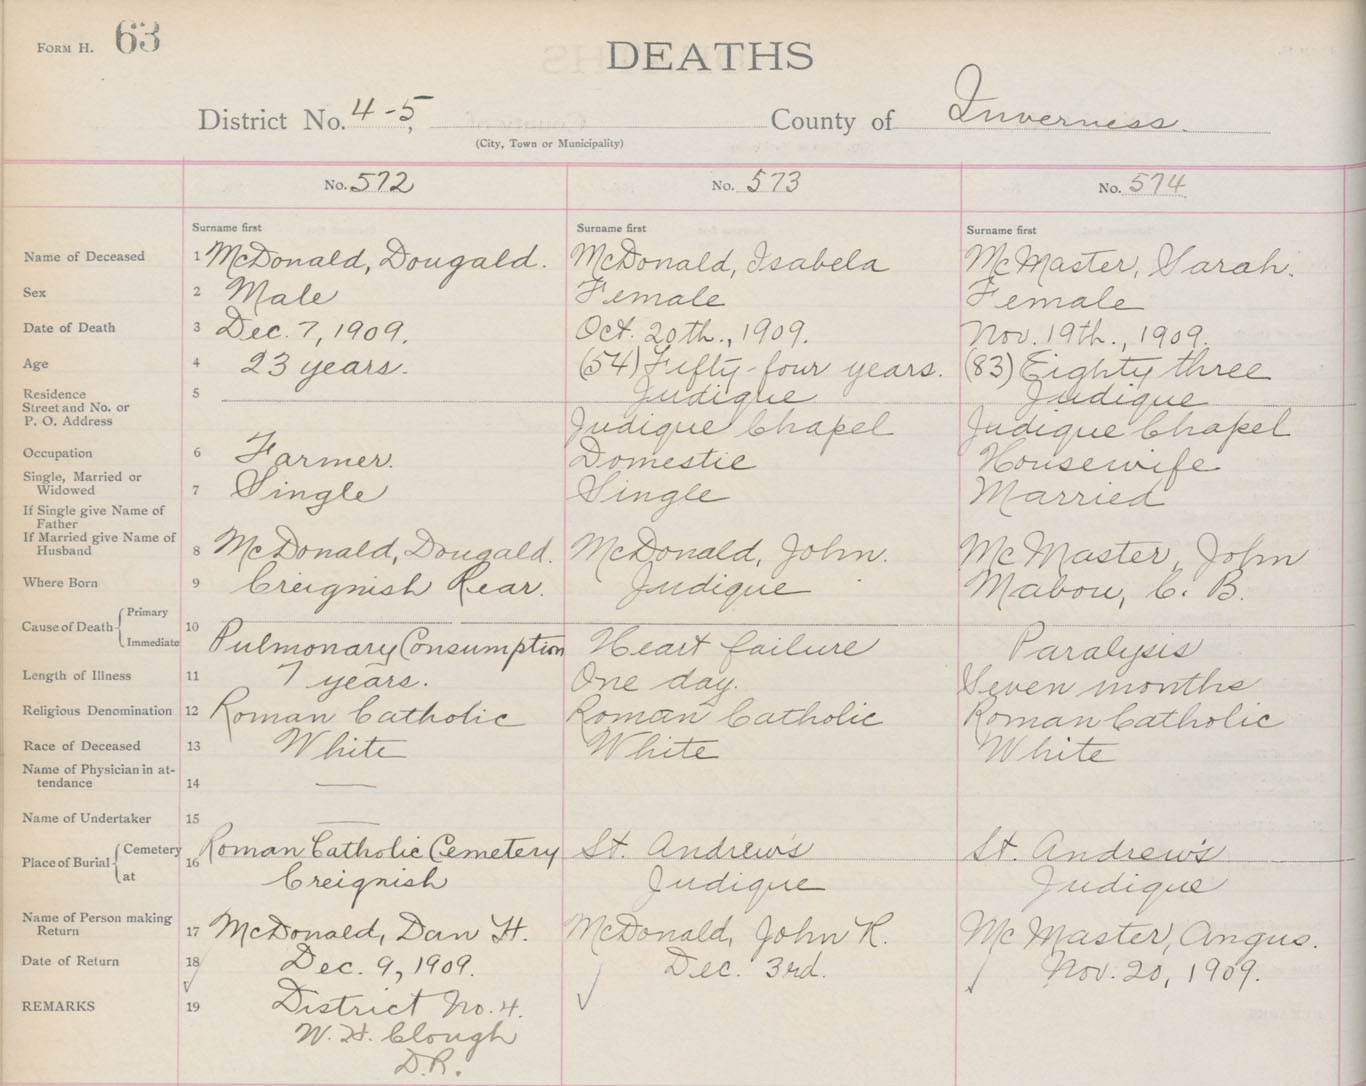 FORM H. 63
DEATHS
District No. 4-5, County of Inverness.
(City, Town or Municipality)
No. 572 No. 573 No. 574
Surname first Surname first Surname first
Name of Deceased 1 McDonald, Dougald. McDonald, Isabela McMaster, Sarah.
Sex 2 Male Female Female
Date of Death 3 Dec. 7, 1909. Oct. 20th., 1909. Nov. 19th., 1909.
Age 4 23 years. (54) Fifty-four years. (83) Eighty three
Residence 5 Judique Judique
Street and No. or
P. O. Address Judique Chapel Judique Chapel
Occupation 6 Farmer. Domestic Housewife
Single, Married or
Widowed 7 Single Single Married
If Single give Name of
Father
If Married give Name of
Husband 8 McDonald, Dougald. McDonald, John. McMaster, John
Where Born 9 Creignish Rear. Judique Mabou, C. B.
Cause of Death Primary
Immediate 10 Pulmonary Consumption Heart failure Paralysis
Length of Illness 11 7 years. One day. Seven months
Religious Denomination 12 Roman Catholic Roman Catholic Roman Catholic
Race of Deceased 13 White White White
Name of Physician in at-
tendance 14 —
Name of Undertaker 15 —
Place of Burial Cemetery 16 Roman Catholic Cemetery St. Andrew's St. Andrew's
at Creignish Judique Judique
Name of Person making
Return 17 McDonald, Dan H. McDonald, John R. McMaster, Angus.
Date of Return 18 Dec. 9, 1909. Dec. 3rd. Nov. 20, 1909.
REMARKS 19 District No. 4.
W. H. Clough
D.R.